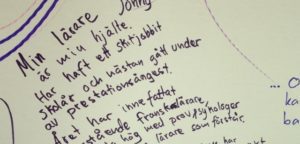 Johny
Min lärare
är min hjälte.
Har haft ett skitjobbit
skolår och nästan gått under
av prestationsångest.
Året har innefattat
stående fransklärare,
hög med prov, psykologer
lärare som förstår.
... O
ka
ba